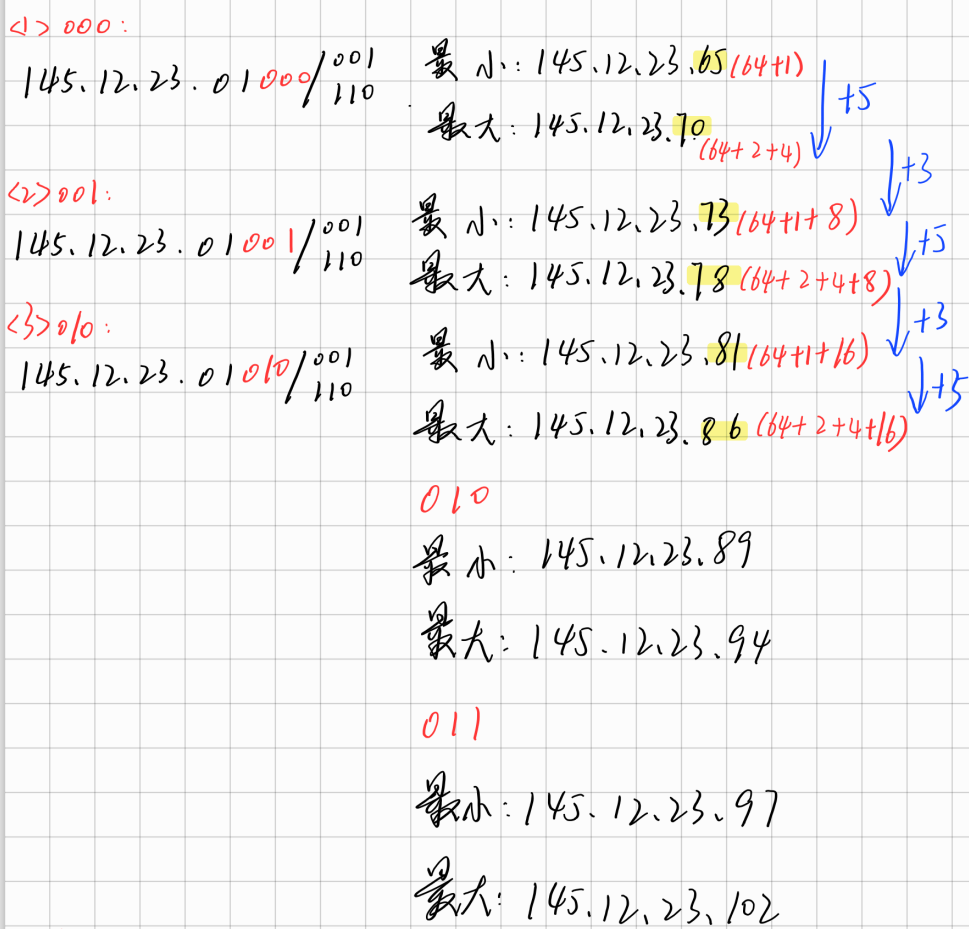 <1>000:
145.12.23.01000/001
110
最小:145.12.23.65(64+1)
最大:145.12.23.70
(64+2+4)
+5
+3
<2>001:
145.12.23.01001/001
110
最小:145.12.23.73(64+1+8)
最大:145.12.23.78(64+2+4+8)
+5
+3
<3>010:
145.12.23.01010/001
110
最小:145.12.23.81(64+1+16)
最大:145.12.23.86(64+2+4+16)
+5
010
最小:145.12.23.89
最大:145.12.23.94
011
最小:145.12.23.97
最大:145.12.23.102